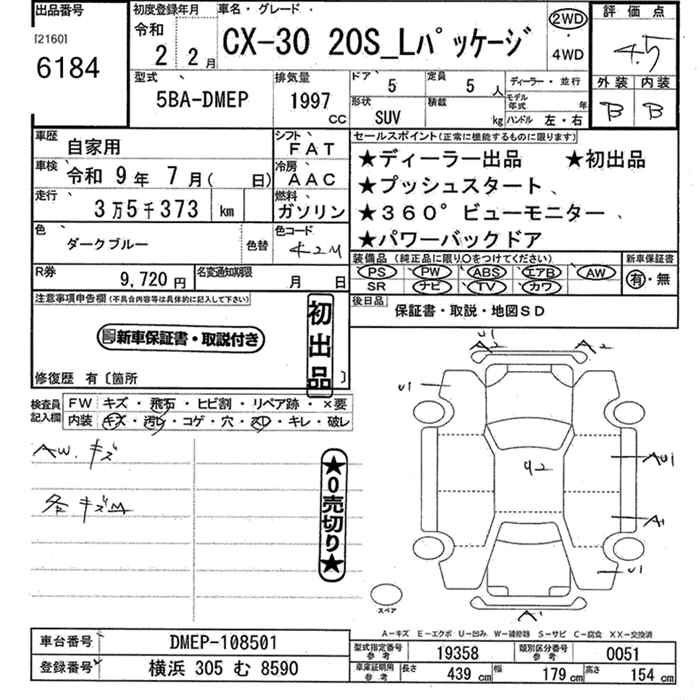 出品番号
[2160]
6184
初度登録年月
令和
2 年 2 月
車名・グレード
CX-30 20S_Lパッケージ
2WD
・
4WD
評価点
4.5
外装 内装
B B
型式
5BA-DMEP
排気量
1997
CC
ドア
5
定員
5 人
形状
SUV
積載
kg
ディーラー・並行
モデル年式 年
ハンドル 左・右
車歴
自家用
シフト
FAT
車検
令和 9 年 7 月 ( 日)
冷房
AAC
走行
3万5千373 km
燃料
ガソリン
色
ダークブルー
色替
色コード
42M
R券
9,720 円
名変通知期限
月 日
セールスポイント(正常に機能するものに限ります)
★ディーラー出品 ★初出品
★プッシュスタート
★360°ビューモニター
★パワーバックドア
装備品 (純正品に限り○をつけてください)
PS PW ABS エアB AW
SR ナビ TV カワ
新車保証書
有・無
後日品
保証書・取説・地図SD
注意事項申告欄(不具合内容等は具体的に記入して下さい)
新車保証書・取説付き
初出品
修復歴 有〔箇所 〕
検査員記入欄
FW キズ・飛石・ヒビ割・リペア跡・×要
内装 キズ・汚レ・コゲ・穴・スレ・キレ・破レ
AW. キズ
各 キズM
★0売切り★
U1
A2 A2
U1
42
AU1
A1
U1
A1
スペア
A-キズ E-エクボ U-凹み W-補修跡 S-サビ C-腐食 XX-交換済
車台番号
DMEP-108501
登録番号
横浜 305 む 8590
型式指定番号
参考
19358
類別区分番号
参考
0051
車庫証明用
参考
長さ 439 cm 幅 179 cm 高さ 154 cm